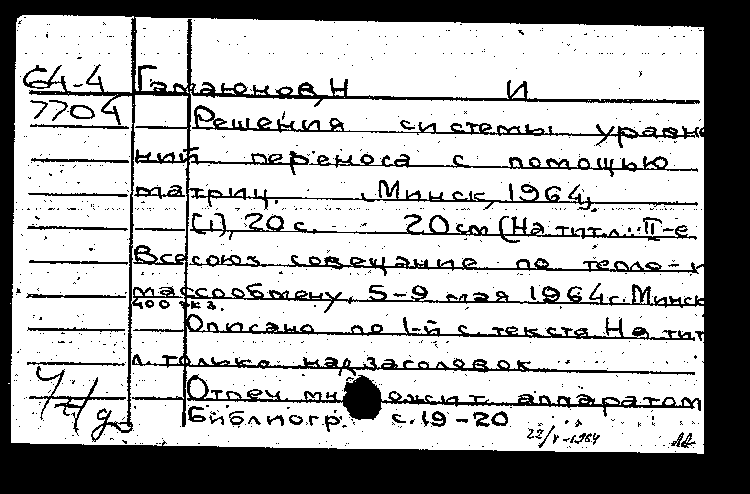 64-4 Гамаюнов, Н И
7704 Решения системы уравне
ний переноса с помощью
матриц. Минск, 1964.
(1), 20 с. 20 см (На тит. л.: II-е
Всесоюз совещание по тепло- и
массообмену, 5-9 мая 1964г. Минск
400 экз.
Описано по 1-й с. текста На тит
л. только надзаголовок
Отпеч мн ожит. аппаратом
Библиогр. с. 19-20
22/V-1964